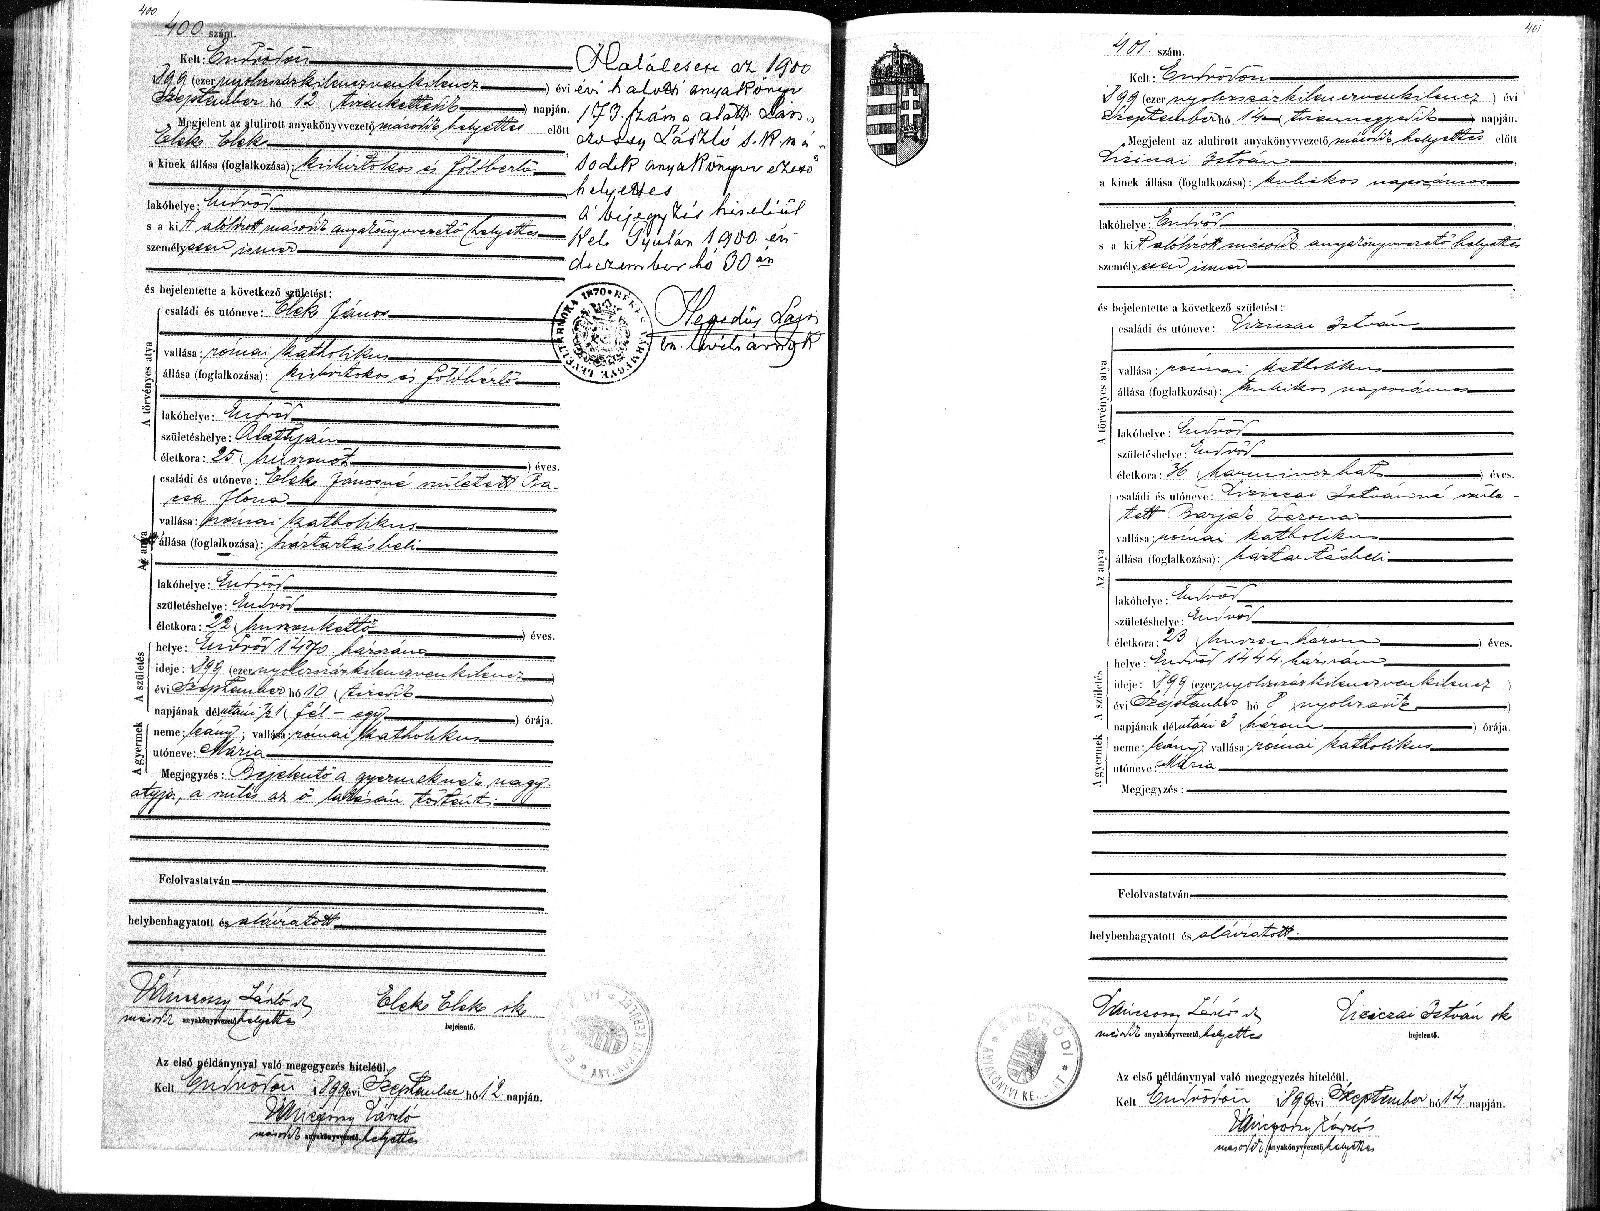 400
400 szám.
Kelt: Endrődön
899 (ezer nyolcszázkilenczvenkilencz) évi
Szeptember hó 12 (tizenkettedik) napján.
Megjelent az alulirott anyakönyvvezető második helyettes előtt
Elek Elek
a kinek állása (foglalkozása): kisbirtokos és
lakóhelye: Endrőd
s a kit alólirott második anyakönyvvezető helyettes
személyesen ismer
és bejelentette a következő születést:
A törvényes atya
családi és utóneve: Elek János
vallása: római katholikus
állása (foglalkozása): kisbirtokos és
lakóhelye: Endrőd
születéshelye: Alattyán
életkora: 25 (huszonöt) éves.
Az anya
családi és utóneve: Elek Jánosné született
Ilona
vallása: római katholikus
állása (foglalkozása): háztartásbeli
lakóhelye: Endrőd
születéshelye: Endrőd
életkora: 22 (huszonkettő) éves.
A születés
helye: Endrőd 1470 házszám
ideje: 899 (ezer nyolcszázkilenczvenkilencz)
évi Szeptember hó 10 (tizedik)
napjának délutáni ½1 (fél-egy) órája.
A gyermek
neme: leány; vallása: római katholikus
utóneve: Mária
Megjegyzés: Bejelentő a gyermeknek nagy
atyja, a szülés az ő lakásán történt.
Felolvastatván
helybenhagyatott és aláiratott
László sk
második anyakönyvvezető helyettes
Elek Elek sk
bejelentő.
Az első példánynyal való megegyezés hiteléül.
Kelt Endrődön 899 évi Szeptember hó 12 napján.
László
második anyakönyvvezető helyettes
Haláleset az 1900
évi halotti anyakönyv
173 száma alatt
László s.k. má-
sodik anyakönyvvezető
helyettes
A bejegyzés hiteléül
Kelt Gyulán 1900 évi
deczember hó 30 án
Hegedűs Lajos
m. levéltárnok
401
401 szám.
Kelt: Endrődön
899 (ezer nyolcszázkilenczvenkilencz) évi
Szeptember hó 14 (tizennegyedik) napján.
Megjelent az alulirott anyakönyvvezető második helyettes előtt
István
a kinek állása (foglalkozása): kubikos napszámos
lakóhelye: Endrőd
s a kit alólirott második anyakönyvvezető helyettes
személyesen ismer
és bejelentette a következő születést:
A törvényes atya
családi és utóneve: István
vallása: római katholikus
állása (foglalkozása): kubikos napszámos
lakóhelye: Endrőd
születéshelye: Endrőd
életkora: 36 (harminczhat) éves.
Az anya
családi és utóneve: Istvánné szüle-
tett Verona
vallása: római katholikus
állása (foglalkozása): háztartásbeli
lakóhelye: Endrőd
születéshelye: Endrőd
életkora: 23 (huszonhárom) éves.
A születés
helye: Endrőd 1444 házszám
ideje: 899 (ezer nyolcszázkilenczvenkilencz)
évi Szeptember hó 8 (nyolczadik)
napjának délutáni 3 (három) órája.
A gyermek
neme: leány; vallása: római katholikus
utóneve: Mária
Megjegyzés:
Felolvastatván
helybenhagyatott és aláiratott
László sk
második anyakönyvvezető helyettes
István sk
bejelentő.
Az első példánynyal való megegyezés hiteléül.
Kelt Endrődön 899 évi Szeptember hó 14 napján.
László
második anyakönyvvezető helyettes